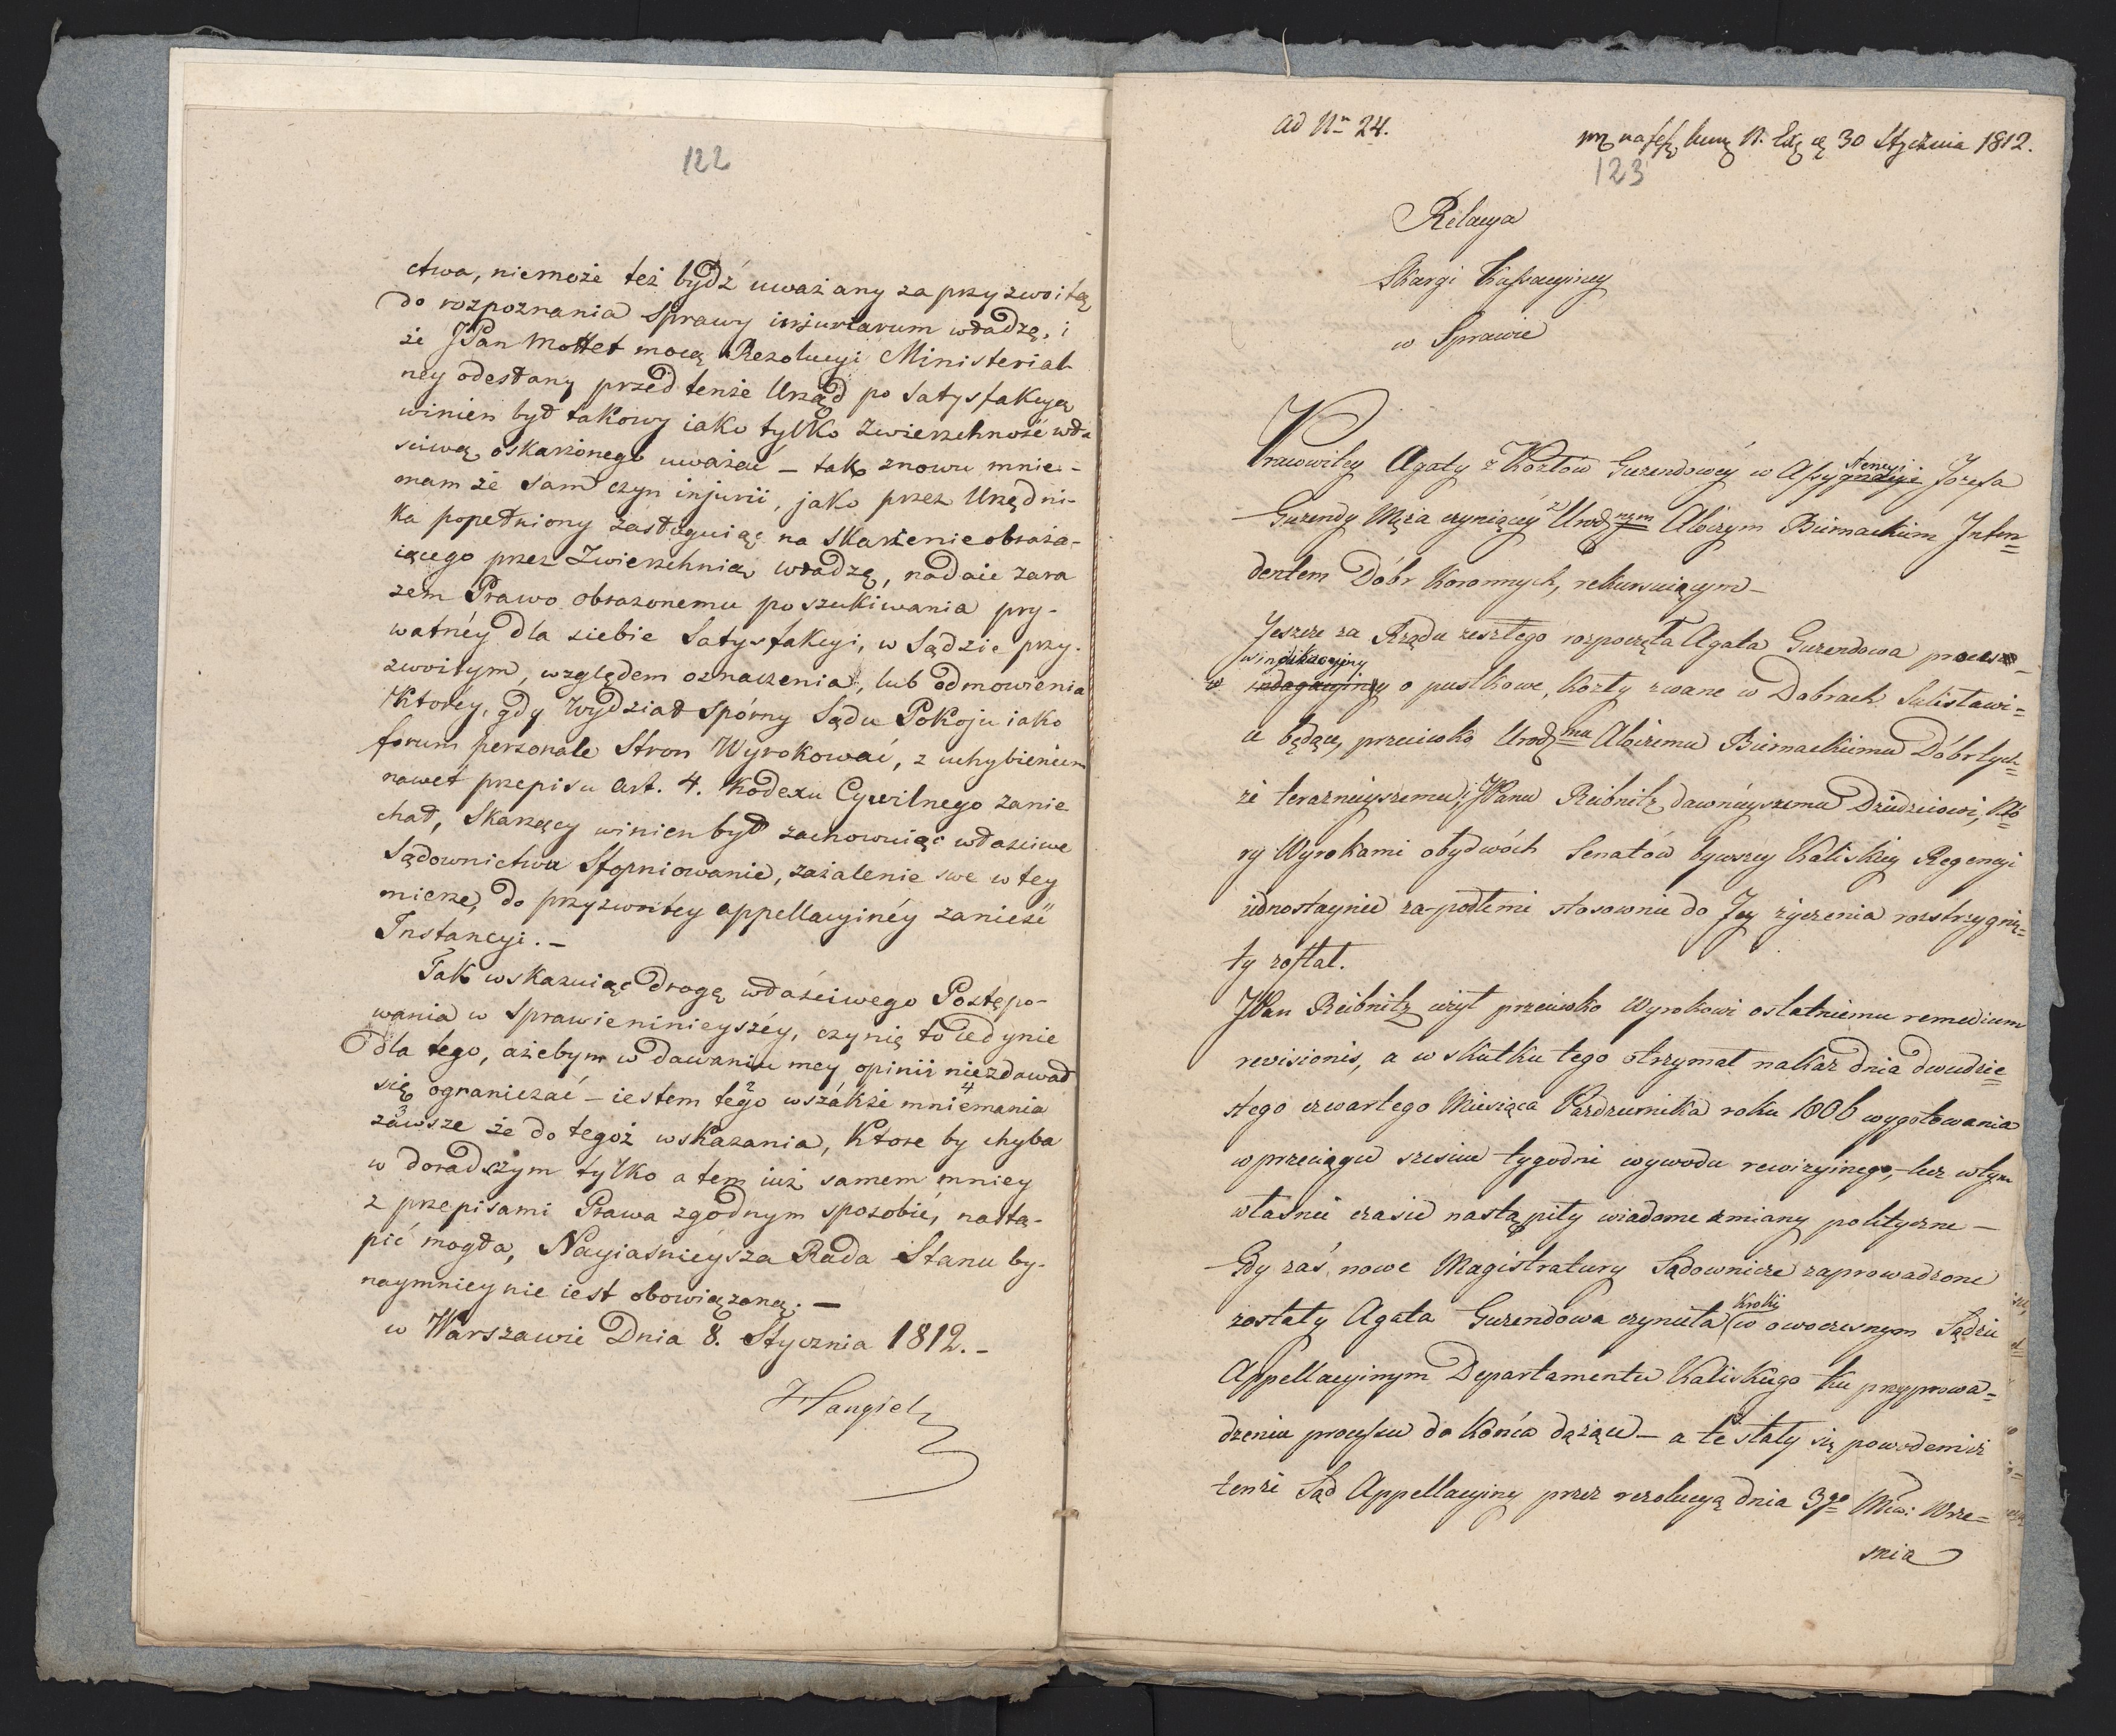 122
ctwa, niemoże też bydź uważany za przyzwoitą
do rozpoznania Sprawy injuriarum władzę, i
że JPan Mottet mocą Rezolucyi Ministerial-
ney odesłany przed tenże Urząd po Satysfakcyą
winien był takowy iako tylko Zwierzchność wła
sciwą oskarżonego uważać – tak znowu mnie-
mam że sam czyn injurii, jako przez Urzędni-
ka popełniony zasługuiąc na skarżenie obraża-
iącego przez Zwierzchnią władzę, nadaie zara
zem Prawo obrażonemu poszukiwania pry-
watnéy dla siebie Satysfakcyi, w Sądzie przy-
zwoitym, względem oznaczenia, lub odmowienia
Ktoréy, gdy Wydział Spórny Sądu Pokoju iako
forum personale Stron Wyrokować, z uchybieniem
nawet przepisu art. 4. Kodexu Cywilnego zanie
chał, Skarżący winien był zachowuiąc właściwe
Sądownictwa Stopniowanie, zażalenie swe w tey
mierze, do przyzwoitey appellacyinéy zanieść
Instancyi. –
Tak wskazuiąc drogę właściwego Postępo-
wania w Sprawie ninieyszéy, czynię to iedynie
dla tego, ażebym w dawaniu mey opinii niezdawał
się ograniczać – iestem tego wszakże mniemania
zawsze że do tegoż wskazania, Ktore by chyba
w doradczym tylko a tem iuż samem mniey
z przepisami Prawa zgodnym sposobie, nastą-
pić mogła, Nayiaśnieysza Rada Stanu by-
naymniey nie iest obowiązaną. –
w Warszawie Dnia 8. Stycznia 1812. –
Hangiel
ad Nm 24.
30 Stycznia 1812.
123
Relacya
Skargi Kassacyiney
w Sprawie
Prawowitey Agaty z Kozłow Gurendowéy w Assystencyi Jozefa
Gurendy Męża czyniącéy z Urodznym Aloizym Biernackim Inten=
dentem Dóbr Koronnych, rekursuiącym –
Jeszcze za Rządu zeszłego rozpoczęła Agata Gurendowa process
windikacyiny
o pustkowe, Kozły zwane w Dobrach Sulisławi=
ce będące, przeciwko Urodzmu Aloizemu Biernackiemu Dóbr tych=
że teraznieyszemu, i JPanu Reibnitz dawnéyszemu Dziedzicowi, Któ
ry Wyrokami obydwóch Senatów bywszey Kaliskiey Regencyi
iednostaynie za podłemi stosownie do Jey życzenia rozstrzygnię=
ty został.
JPan Reibnitz użył przeciwko Wyrokowi ostatniemu remedium
revisionis, a w skutku tego otrzymał nakaz dnia dwudzie=
stego czwartego Miesiąca Pazdziernika roku 1806 wygotowania
w przeciągu sześciu tygodni wywodu rewizyinego, – lecz w tym
własnie czasie nastąpiły wiadome zmiany polityczne –
Gdy zaś nowe Magistratury Sądownicze zaprowadzone
zostały Agata Gurendowa czyniła Kroki w owoczesnym Sądzie
Appellacyinym Departamentu Kaliskiego ku przyprowa=
dzeniu processu do Końca dążące – a te stały się powodem iż
tenże Sąd Appellacyiny przez rezolucyą dnia 3go Mca: Wrze=
snia